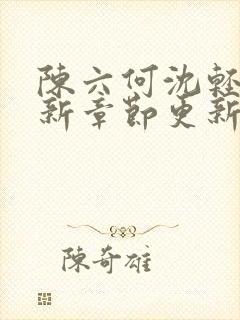 陳六何沈輕
新章節更新
陳奇雄